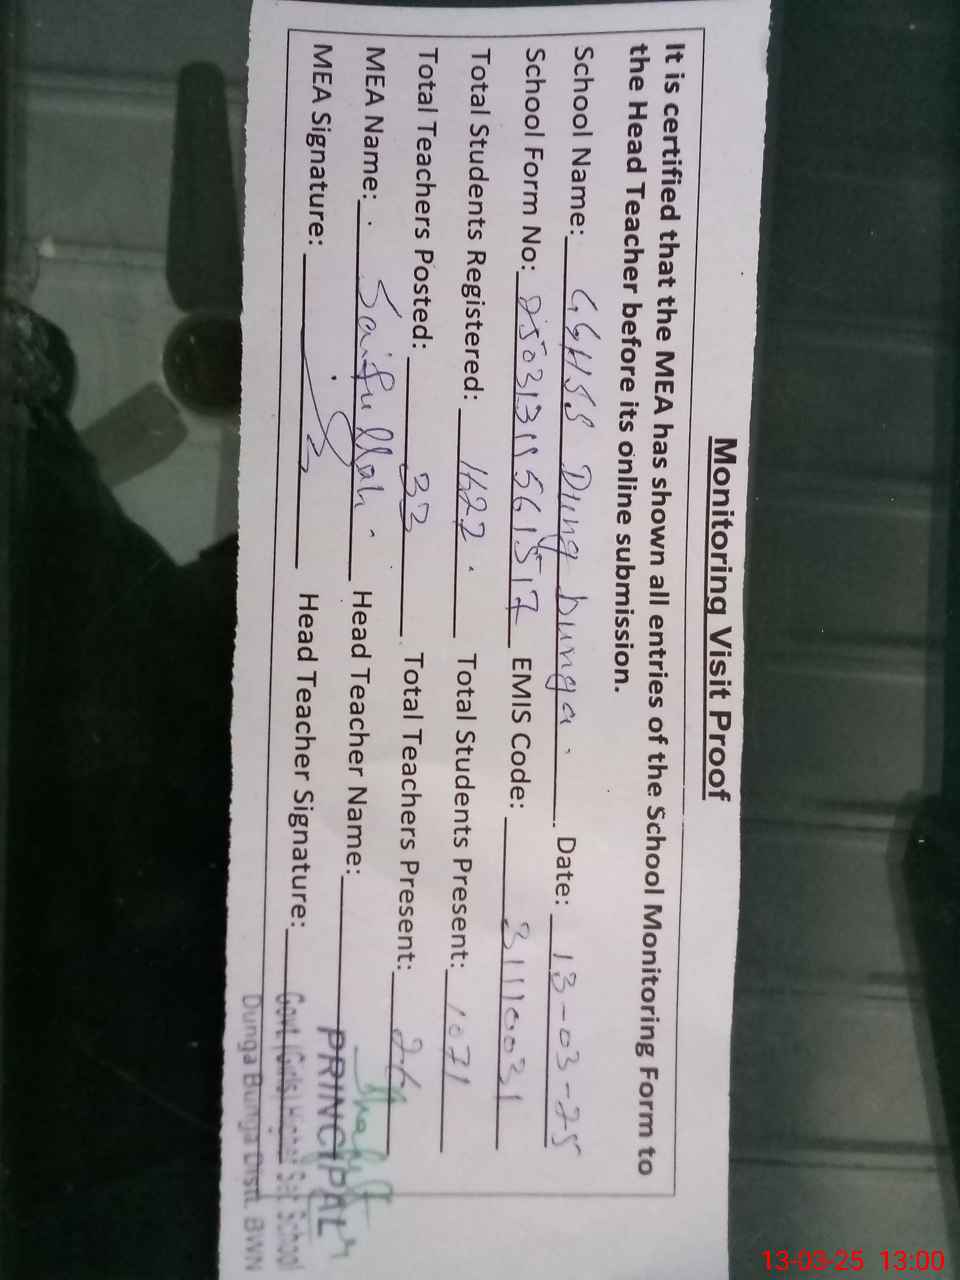 Monitoring Visit Proof
It is certified that the MEA has shown all entries of the School Monitoring Form to
the Head Teacher before its online submission.
School Name: GGHSS Dung Bunga. Date: 13-03-25
School Form No: EMIS Code: 31110031
Total Students Registered: 1622. Total Students Present: 1071
Total Teachers Posted: 33 Total Teachers Present:
MEA Name: Saifullah Head Teacher Name:
MEA Signature: Head Teacher Signature:
PRINCIPAL
Govt. (Girls) Higher Sec. School
Dunga Bunga Distt. BWN
13-03-25 13:00